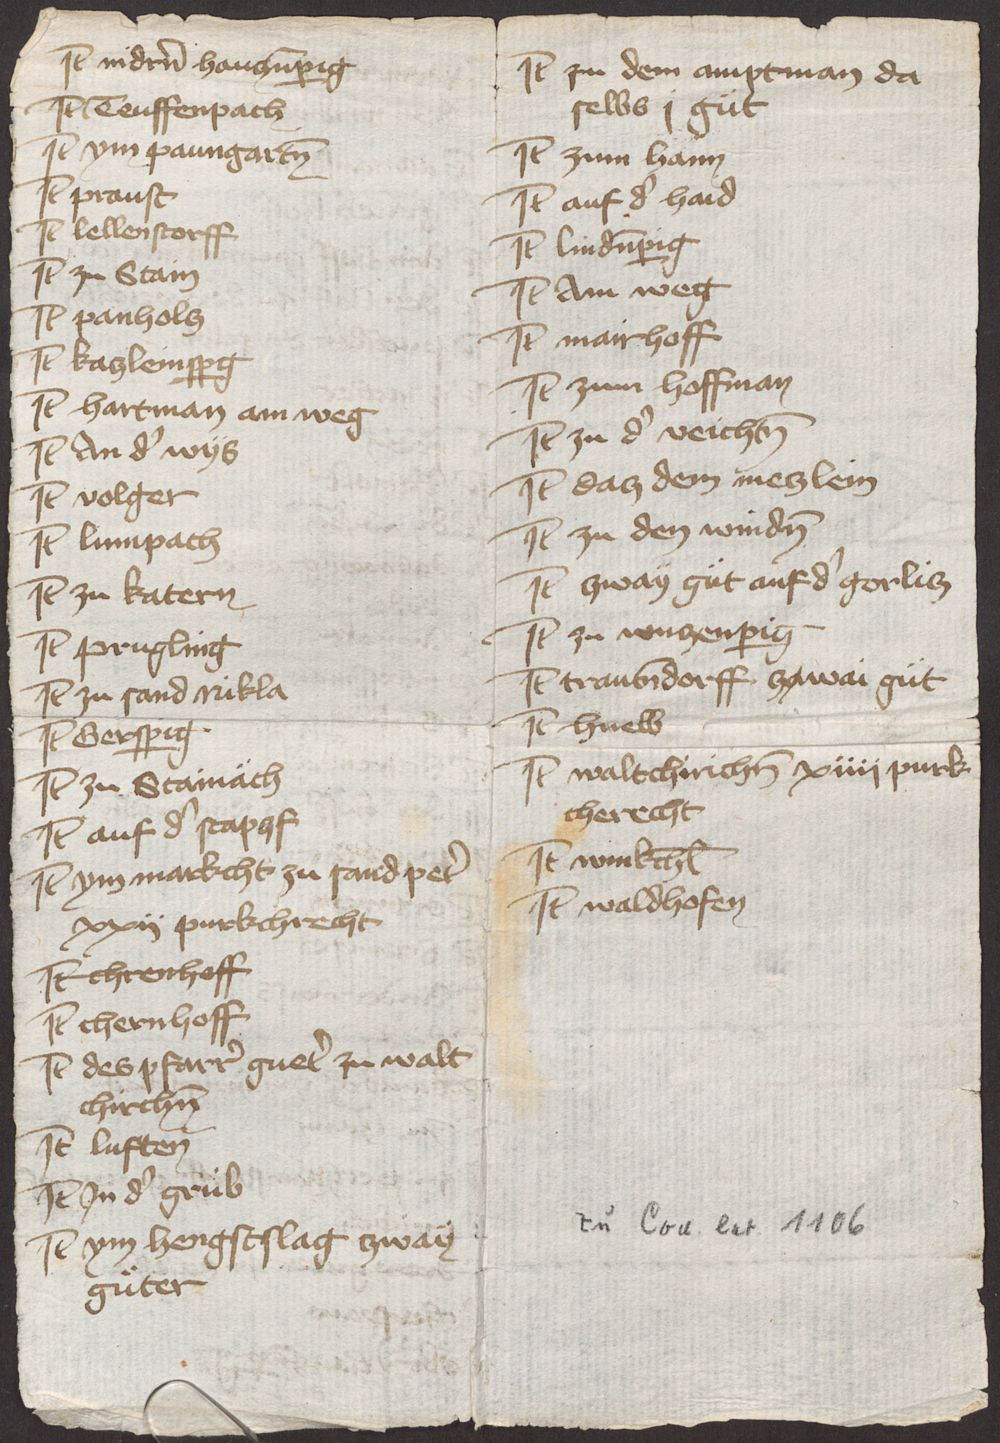 Jt nidrn̄ hauzn̄perig
Jt Teuffenpach
Jt ym paungartn̄
Jt praust
Jt lellenstorff
Jt zu Stain
Jt panholz
Jt kazleinsperg
Jt hartman am weg
Jt An d' wÿs
Jt volger
Jt lumpach
Jt zu katern
Jt prugling
Jt zu sand Nikla
Jt Gersperig
Jt zu Stainäch
Jt auf d' staphf
Jt ym markcht zu sand pet'
xxij purkchrecht
Jt chrenhoff
Jt chernhoff
Jt des pfarr' guet' zu walt
chirchn̄
Jt luften
Jt Jn d' grüb
Jt ym hengstslag zwaÿ
güter
Jt zu dem amptman da
selbs j güt
Jt zum hann
Jt auf d' haid
Jt lindn̄perig
Jt Am weg
Jt mairhoff
Jt zum hoffman
Jt zu d' veichtn̄
Jt daz dem mezlein
Jt zu den windn̄
Jt zwaÿ güt auf d' gorliz
Jt zu wuzenperig
Jt traubn̄dorff zwai güt
Jt hueb
Jt waltchirichn̄ xiiij purk
cherecht
Jt winkchl̄
Jt waldhofen
zu Cod. lat. 1106